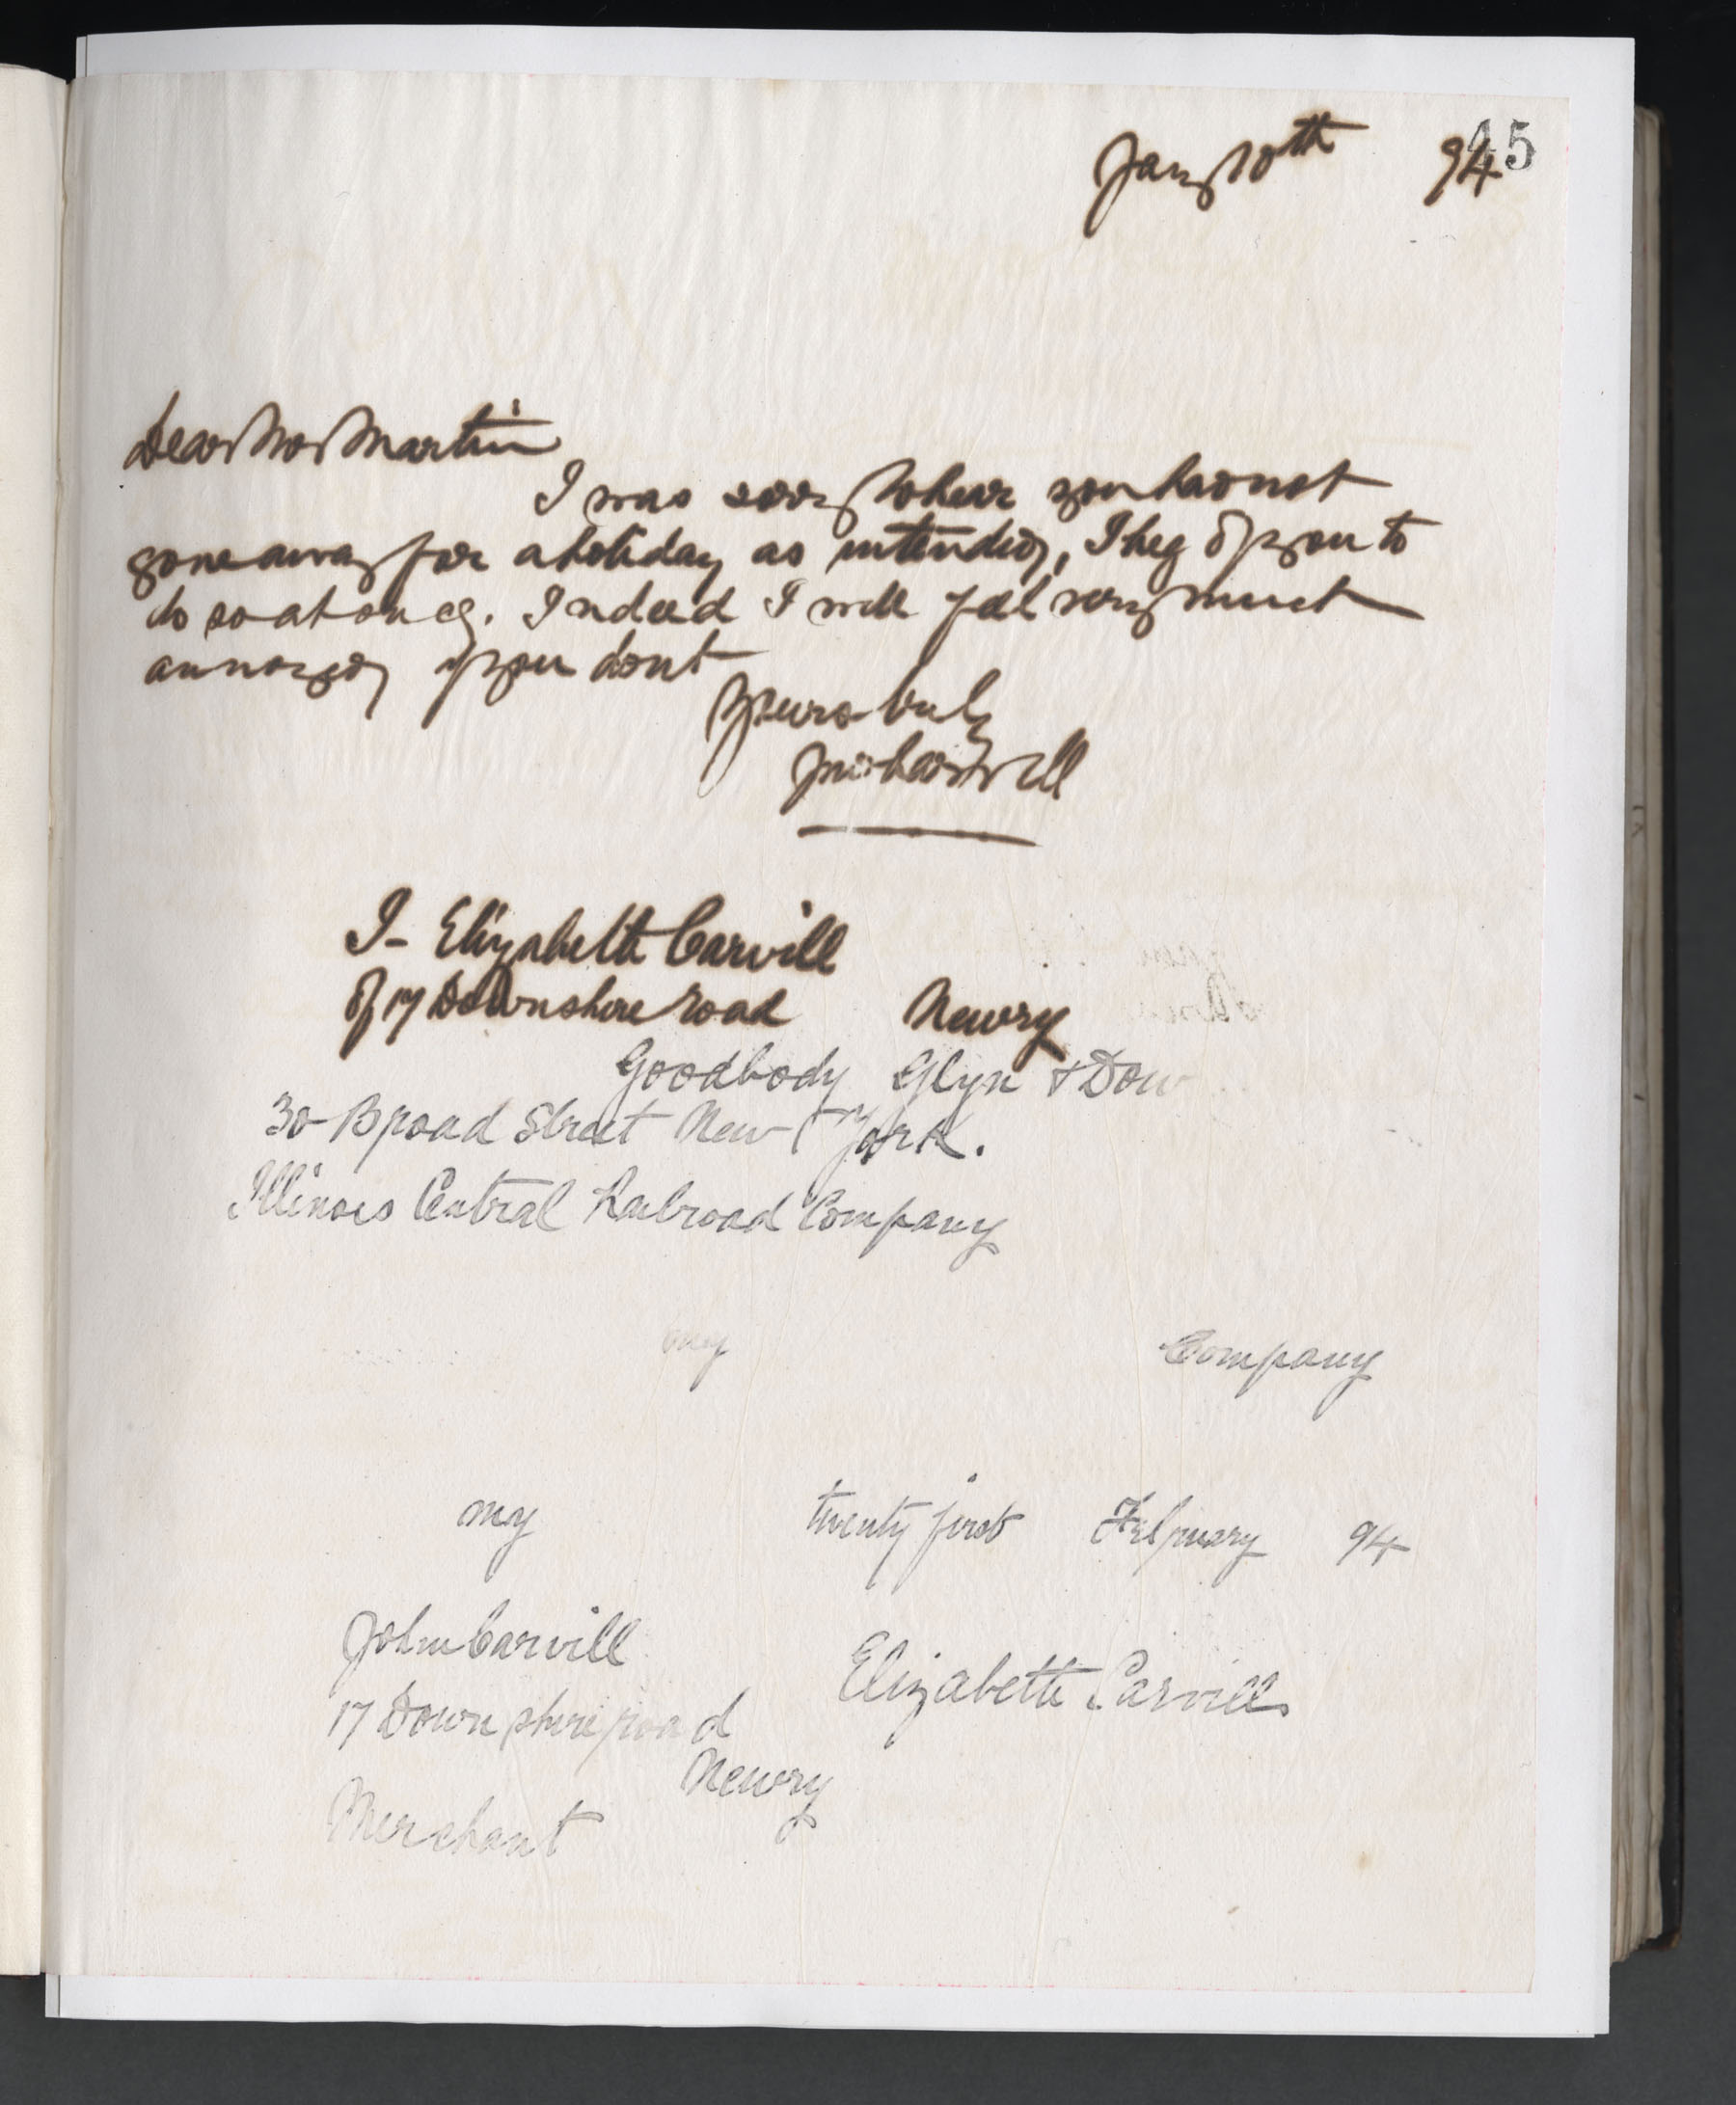 45
Jany 10th 94
Dear Mr Martin
I was sorry to hear you had not
gone away for a holiday as intended, I beg of you to
do so at once. Indeed I will feel very much
annoyed if you dont
Yours truly
Jno Carvill
I- Elizabeth Carvill
Of 17 Downshire road Newry
Goodbody Glyn & Dow
30 Broad Street New York.
Illinois Central Railroad Company
my Company
my twenty first February 94
John Carvill
Elizabeth Carvill
17 Downshire road
Newry
Merchant